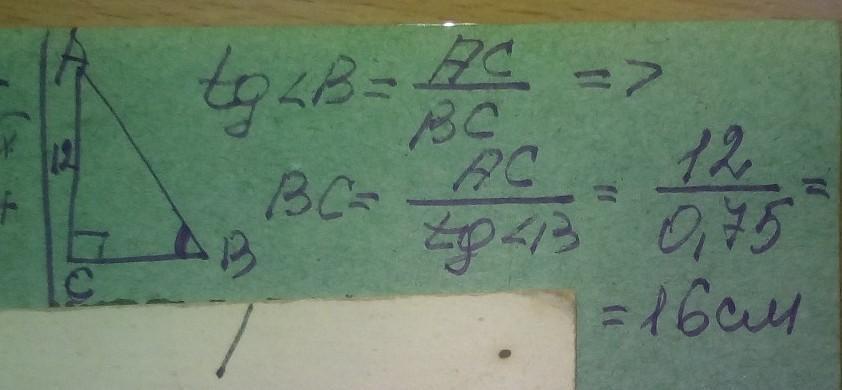 A
12
C
B
tg<B = AC/BC =>
BC = AC/tg<B = 12/0,75 =
= 16 см